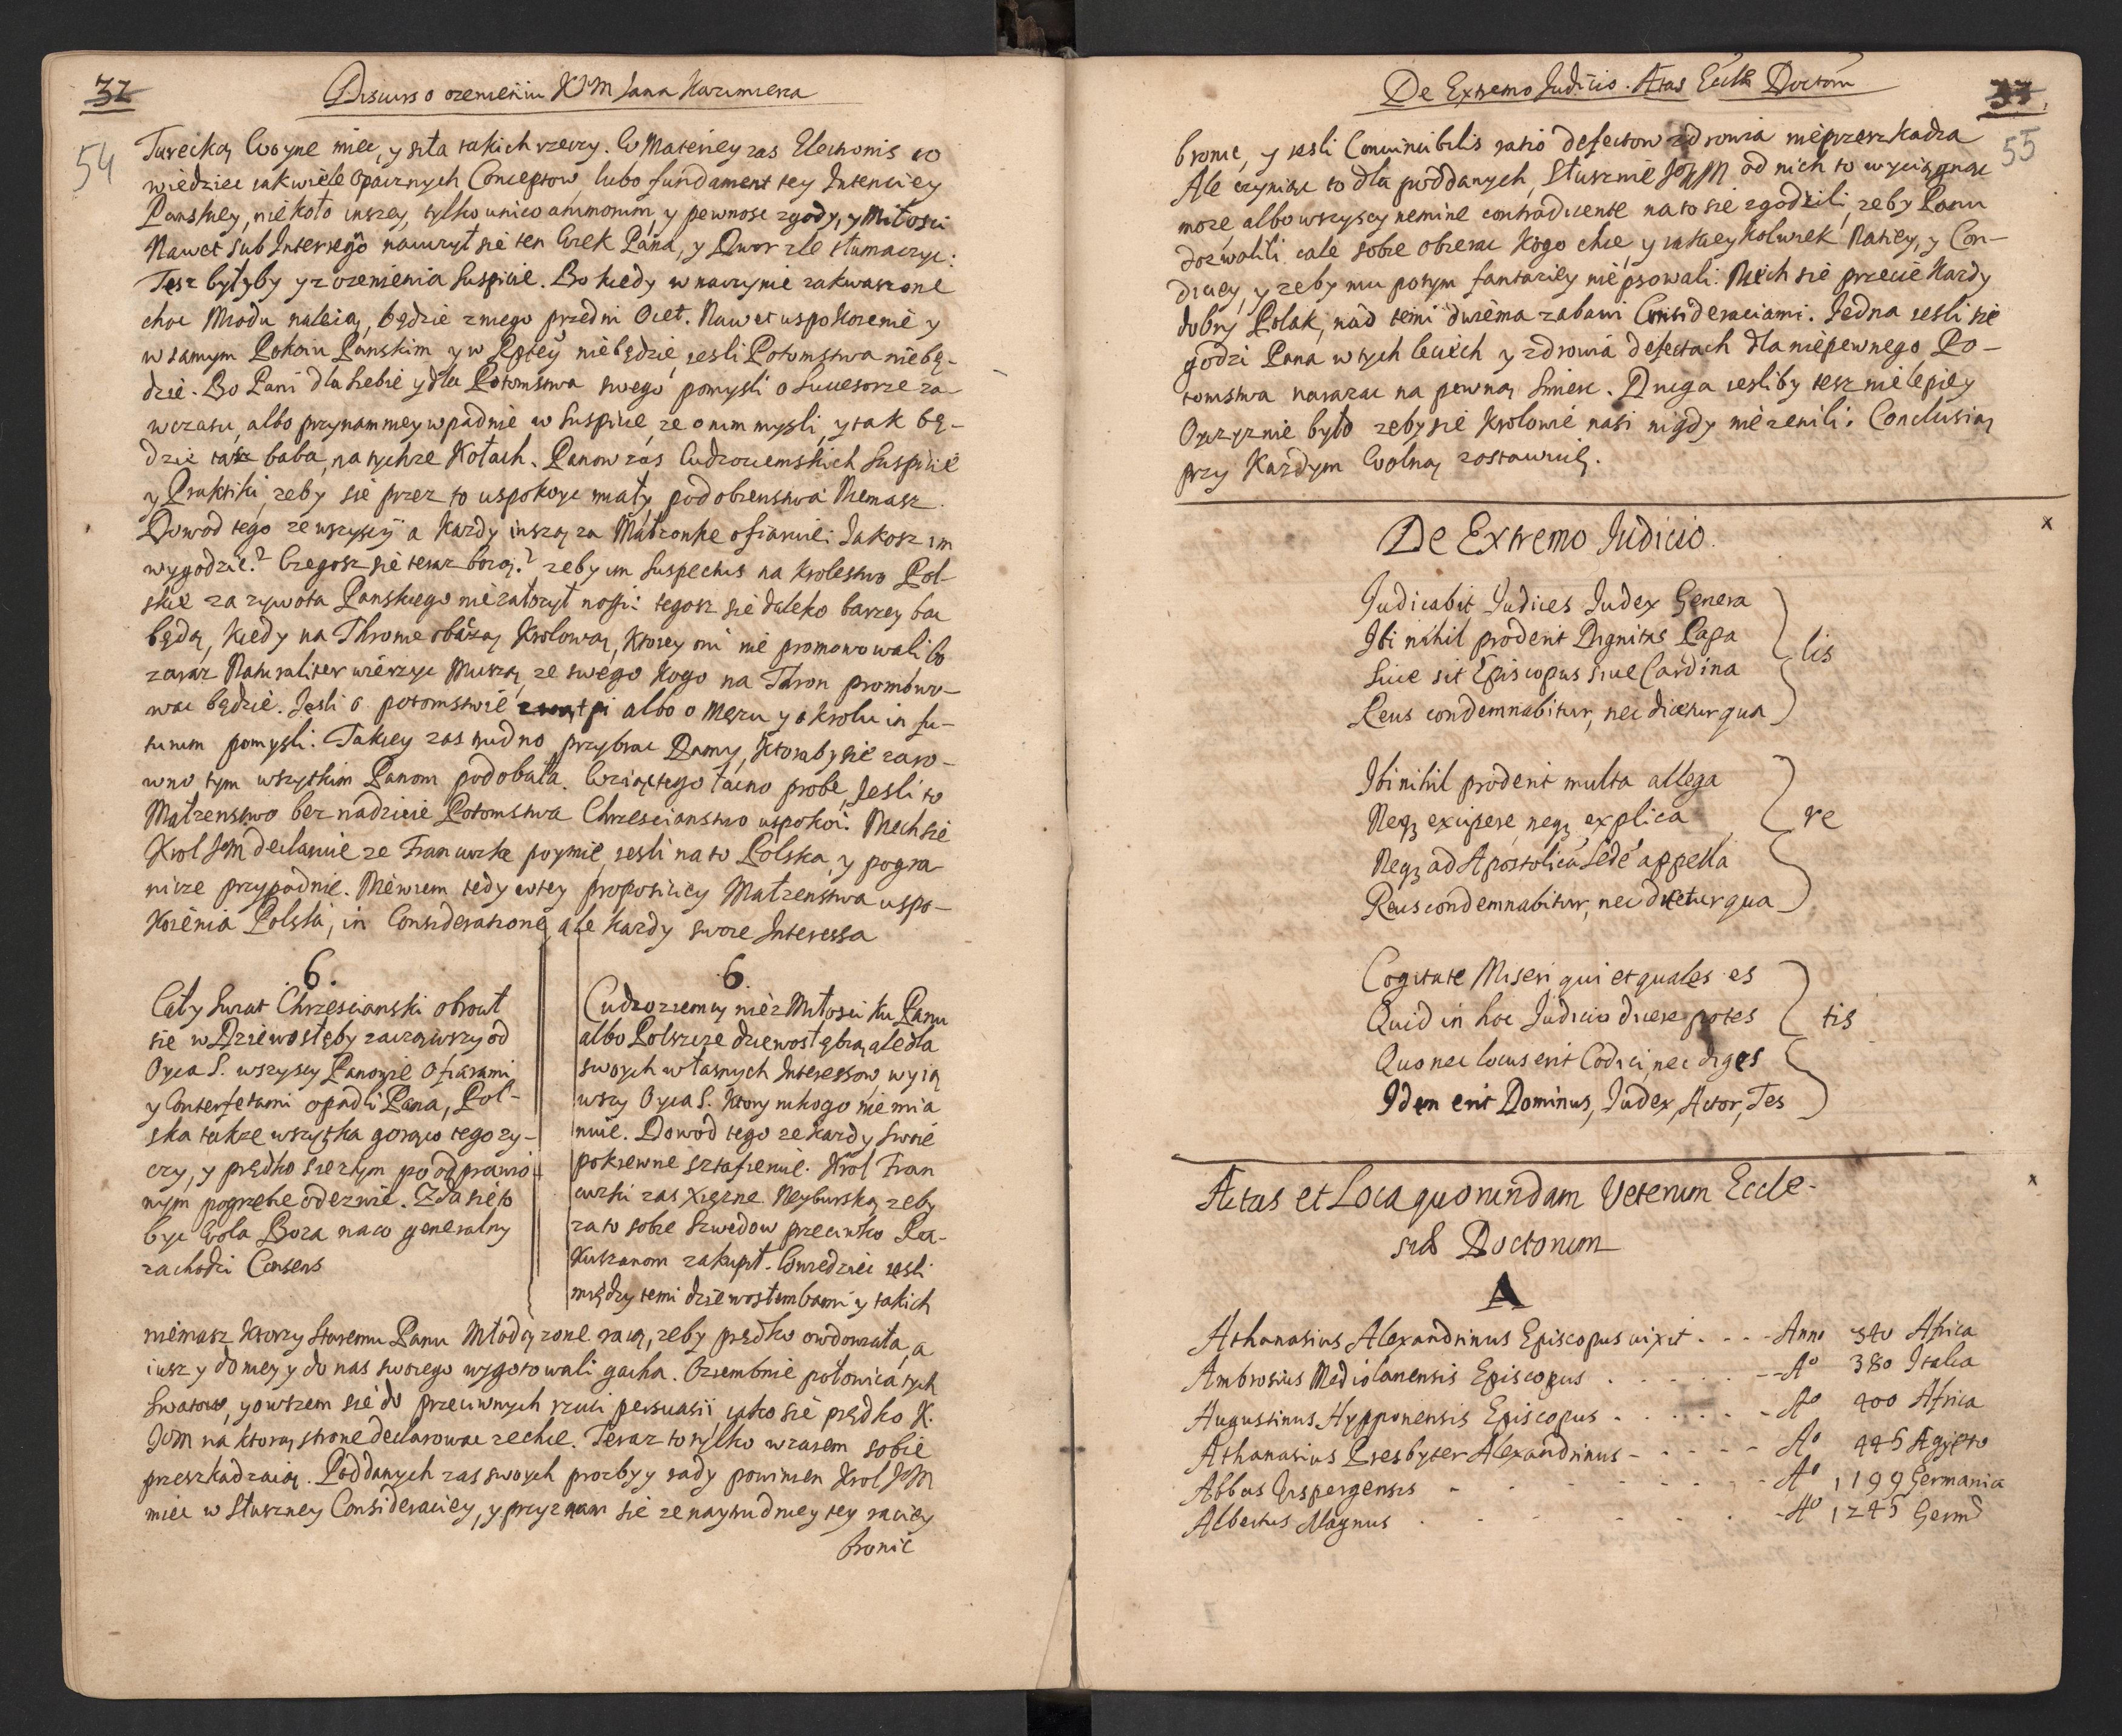 32
Discurs o ozenieniu K J M Jana Kazimierza
54
Turecką Woynę miec, y siła takich rzeczy. W Materiey zas Electionis co
wiedziec iak wiele opacznych Conceptow, lubo fundament tey Intenciey
Panskiey, nie koło inszey, tylko unico animorum, y pewnosc zgody, y Miłosci
Nawet sub nauczył się ten Wiek Pana, y Dwor zle tłumaczyc:
Tesz byłyby y z ozenienia Suspicie. Bo kiedy w naczynie zakwaszone
choc Miodu naleią, będzie z niego przedni Ocet. Nawet uspokoienie y
w samym Pokoiu Panskim y w Rptey nie będzie, iesli Potomstwa nie bę-
dzie. Bo Pani dla siebie y dla Potomstwa swego pomysli o Successorze za
wczasu, albo przynamniey wpadnie w Suspicie, ze o nim mysli, y tak bę-
dzie tasz baba, na tychze Kołach. Panow zas Cudzoziemskich Suspicie
y Praktiki, zeby się przez to uspokoyc miały, podobienstwa Niemasz.
Dowod tego ze wszyscy a Kazdy inszą za Małzonkę ofiaruie: Jakosz im
wygodzic? Czegosz się teraz boią? zeby im Suspectus na Krolestwo Pol-
skie za zywota Panskiego nie załozył nogi: tegosz się daleko barzey bac
będą, kiedy na Thronie obaczą Krolową, Ktorey oni nie promowowali bo
zaraz Naturaliter wierzyc Muszą, ze swego Kogo na Thron promowo-
wac będzie. Jesli o potomstwie zwątpi albo o Męzu y o Krolu in fu-
turum pomysli. Takiey zas trudno przybrac Damy, Ktoraby się zaro-
wno tym wszytkim Panom podobała. Wziąc tego łacno probę, Jesli to
Małzenstwo bez nadzieie Potomstwa Chrzescianstwo uspokoi. Niech się
Krol JeM declaruie ze Francuzkę poymie, iesli na to Polska, y pogra
nicze przypadnie. Niewiem tedy w tey propositiey Małzenstwa uspo-
Koienia Polski, in Consideratione, ale kazdy swoie Interessa
6.
Cały Swiat Chrzescianski obrocił
się w Dziewosłęby zacząwszy od
Oyca S. wszyscy Panowie Ofiarami
y Conterfetami opadli Pana, Pol-
ska takze wszytka gorąco tego zy-
czy, y prędko się z tym po odprawio
nym pogrzebie odezwie. Zda się to
byc Wola Boza na co generalny
zachodzi Consens
6.
Cudzoziemcy nie z Miłosci ku Panu
albo Polszcze dziewosłębią, ale dla
swoych własnych Interessow, wyią
wszy Oyca S. Ktory nikogo nie mia
nuie. Dowod tego ze kazdy swoie
pokrewne sztafiruie. Krol Fran
cuzki zas Xięznę Neyburską zeby
za to sobie Szwedow przeciwko Ra-
Kuszanom zakupił. Wiedziec iesli
między temi dziewosłembami y takich
niemasz Ktorzy Staremu Panu Młodą zonę raią, zeby prędko owdowiała, a
iusz y do niey y do nas swoiego wygotowali gacha. Oziembnie połowica tych
Swatow, y owszem się do przeciwnych rzuci persuasii, iako się prędko K.
JeM na ktorą stronę declarowac zechce. Teraz to tylko wzaiem sobie
przeszkadzaią. Poddanych zas swoych prozby y rady powinien Krol JeM
miec w Słuszney Consideraciey, y przyznam się ze naytrudniey tey raciey
bronic
De Extremo Judicio. Ætas Eccle Doctoru
33
55
bronic, y iesli Convincibilis ratio defectow zdrowia nie przeszkadza
Ale czyniąc to dla poddanych, Słusznie JKM od nich to wyciągnąc
moze, albo wszyscy nemine contradicente na to się zgodzili, zeby Panu
dozwolili cale sobie obierac Kogo chce, y iakieykolwiek Natiey, y Con-
diciey, y zeby mu potym fantaziey nie psowali. Niech się przecie Kazdy
dobry Polak, nad temi dwiema zabawi Consideraciami. Jedna iesli się
godzi Pana w tych leciech y zdrowia defectach dla niepewnego Po-
tomstwa narazac na pewną Smierc. Druga iesliby tesz nie lepiey
Oyczyznie było zeby się Krolowie nasi nigdy nie zenili: Conclusią
przy Kazdym Wolną zostawuię.
De Extremo Judicio. x
Judicabit Judices Judex Genera
Ibi nihil proderit Dignitas Papa
Sive sit Episcopus sive Cardina
Reus condemnabitur, nec dicetur qua
lis
Ibi nihil proderit multa allega
Neq; excipere, neq; explica
Neq; ad Apostolicã Sedẽ appella
Reus condemnabitur, nec dicetur qua
re
Cogitate Miseri qui et quales es
Quid in hoc Judicio dicere potes
Quo nec locus erit Codici, nec diges
Idem erit Dominus, Judex, Actor, Tes
tis
Ætas et Loca quorundam Veterum Eccle- x
siæ Doctorum
A
Athanasius Alexandrinus Episcopus vixit . . . - Anno 340 Africa
Ambrosius Mediolanensis Episcopus . . . . . - Aº 380 Italia
Augustinus Hypponensis Episcopus . . . . . - Aº 400 Africa
Athanasius Presbyter Alexandrinus - . . . . - Aº 445 Ægipto
Abbas Urspergensis - . . . . . - Aº 1199 Germania
Albertus Magnus . . . . . . - Aº 1245 Germã